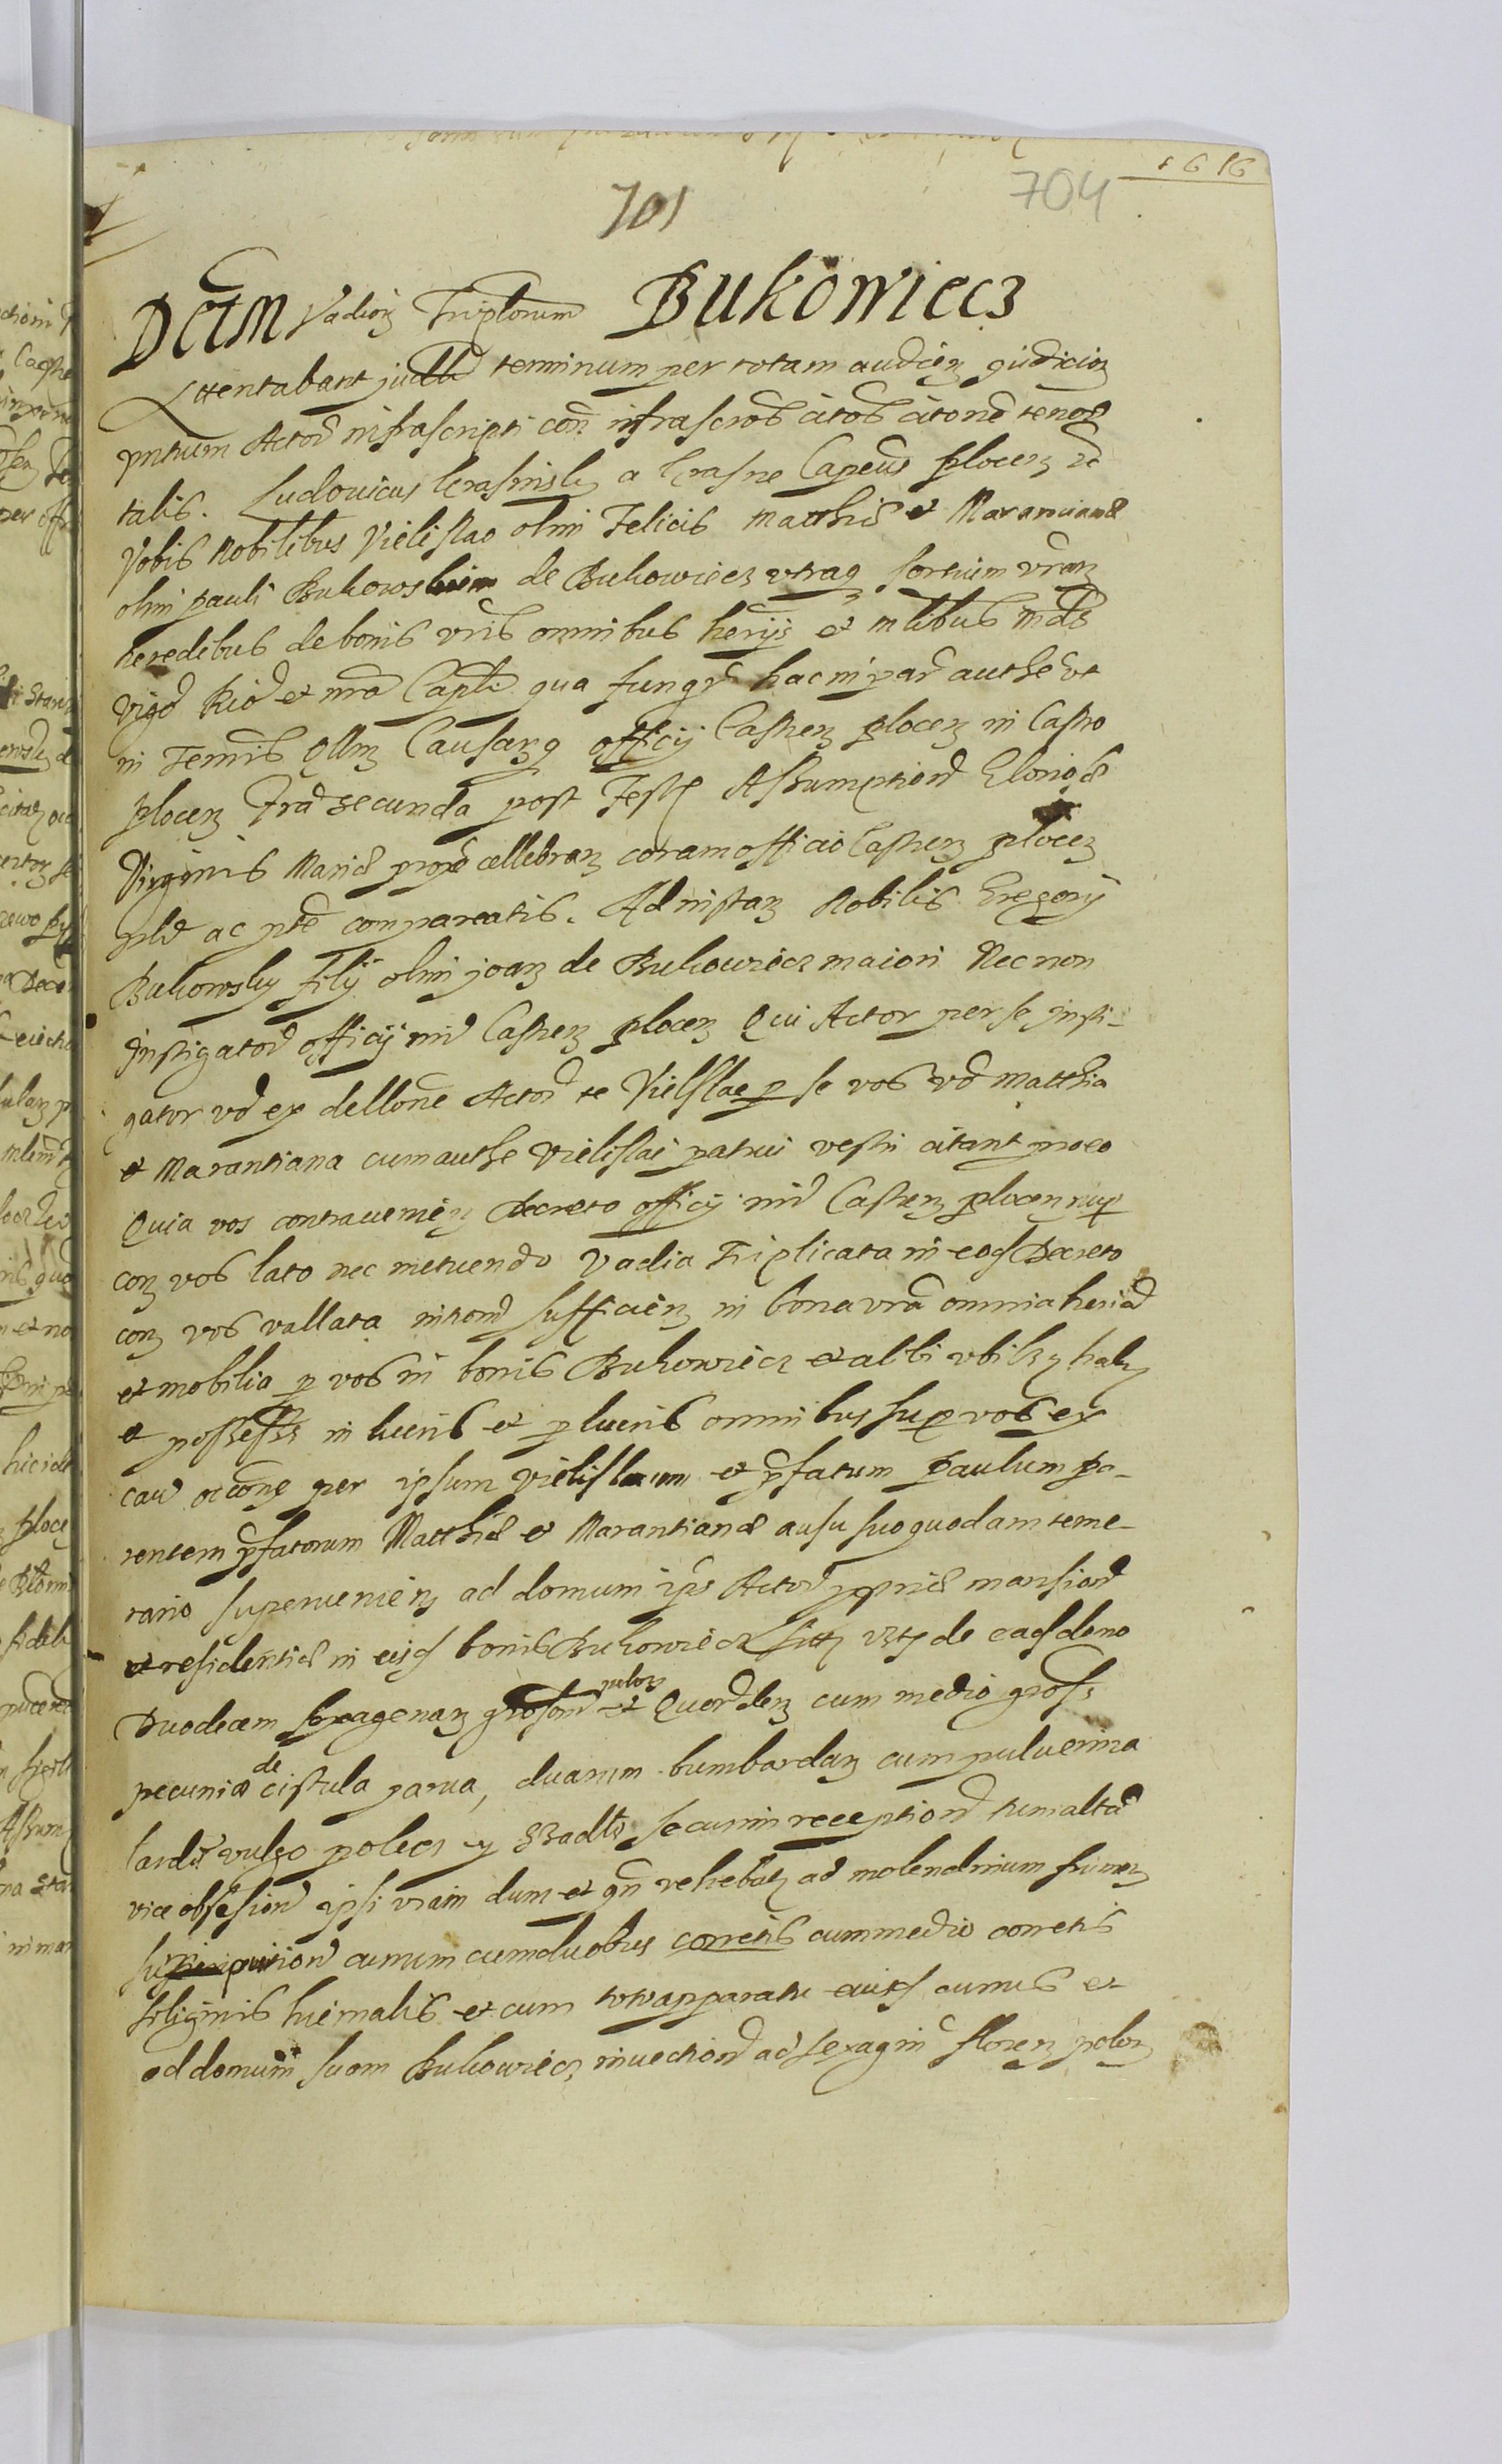 1616
701 704
Dctm Vadior Triplorum Bukowiecz
Attentabant judle terminum per totam audien judicior
pntium Actor infrascripti con infrascros citos citone tenoe
talis. Ludovicus Krasinsky a Krasne Capeus plocen
Vobis Nobilibus Vielislao olim Felicis Matthie et Marantiane
olim pauli Bukowskim de Bukowiecz utraq sortium vran
heredibus de bonis vris omnibus herijs et mlibus mds
vigd Rid et nra Capli qua fungr hac in par authe ut
in Termis Qlln Causarq officij Castren plocen in Castro
plocen fra secunda post Fest Assumptiond Gloriose
Virginis Marie prope cellebran coram officio Castren plocen
plr ac pte compareatis. Ad instan Nobilis Gregorij
Bukowsky filij olim joan de Bukowiecz maiori Necnon
Instigatord officij nri Castren plocen Qui Actor per se Insti-
gator vd ex dellone Actor te Vielislae p se vos vd Matthia
et Marantiana cum authe Vielislai patrui vestri citant pro eo
Quia vos contravenien decreto officij nri Castren plocen nup
con vos lato nec metuendo Vadia Triplicata in eod Decreto
con vos vallata intond sufficien in bona vra omnia heria
et mobilia p vos in bonis Bukowiecz et alibi ubilz haby
et possess in lucris et plucris omnibus sup vos ex
cau occone per ipsum Vielislaum et pfatum paulum pa-
rentem pfatorum Matthie et Marantiane ausu suo quodam teme-
rario supervenien ad domum ips Actor pprie mansiond
et residentie in eisd bonis Bukowiecz sitt de eadd domo
Duodecem sexagenar grossor polon et Quorden cum medio gross
pecunie de cistula parva, duarum bumbardar cum pulverina
lardi vulgo polecz y Szadlo secum receptiond tum alta
vice obsesiond ipsi viam dum et qn vehebat ad molendinum frumen
currum cum duobus corretis cum medio corretis
siliginis hiemalis et cum toto apparatu eiusd currus et
ad domum suam Bukowiecz invectiond ad sexagin floren polon